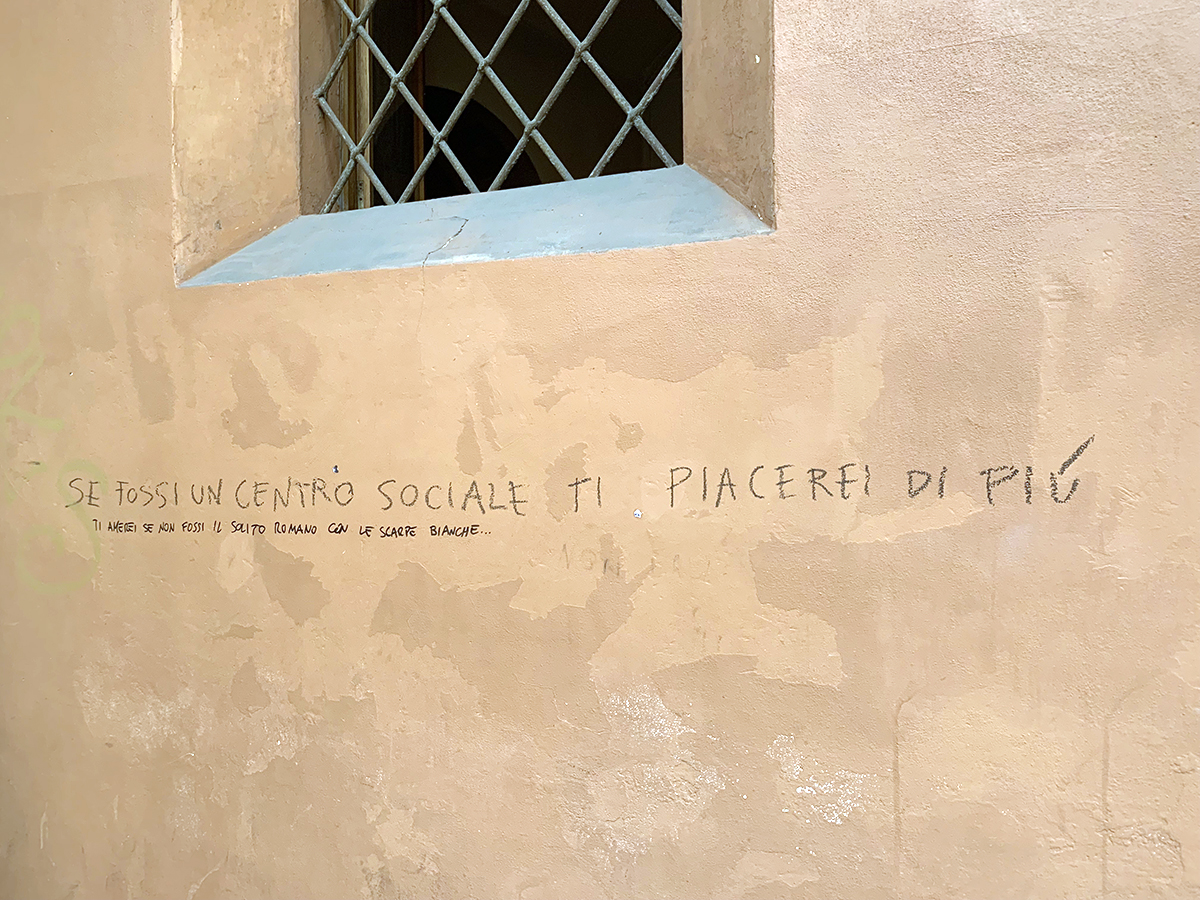 SE FOSSI UN CENTRO SOCIALE TI PIACEREI DI PIÚ
TI AMEREI SE NON FOSSI IL SOLITO ROMANO CON LE SCARPE BIANCHE...